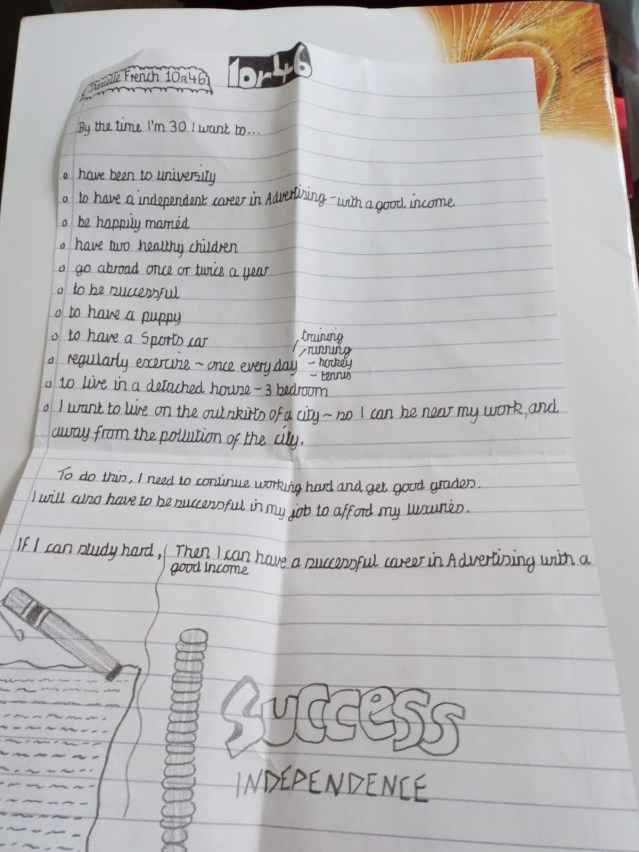 French 10R46
10r46
By the time I'm 30 I want to...
o have been to university
o to have a independent career in Advertising - with a good income
o be happily married
o have two healthy children
o go abroad once or twice a year
o to be successful
o to have a puppy
o to have a Sports car
training
running
o regularly exercise - once every day - hockey
- tennis
o to live in a detached house - 3 bedroom
o I want to live on the outskirts of a city - so I can be near my work, and
away from the pollution of the city.
To do this, I need to continue working hard and get good grades.
I will also have to be successful in my job to afford my luxuries.
If I can study hard, Then I can have a successful career in Advertising with a
good income
Success
INDEPENDENCE